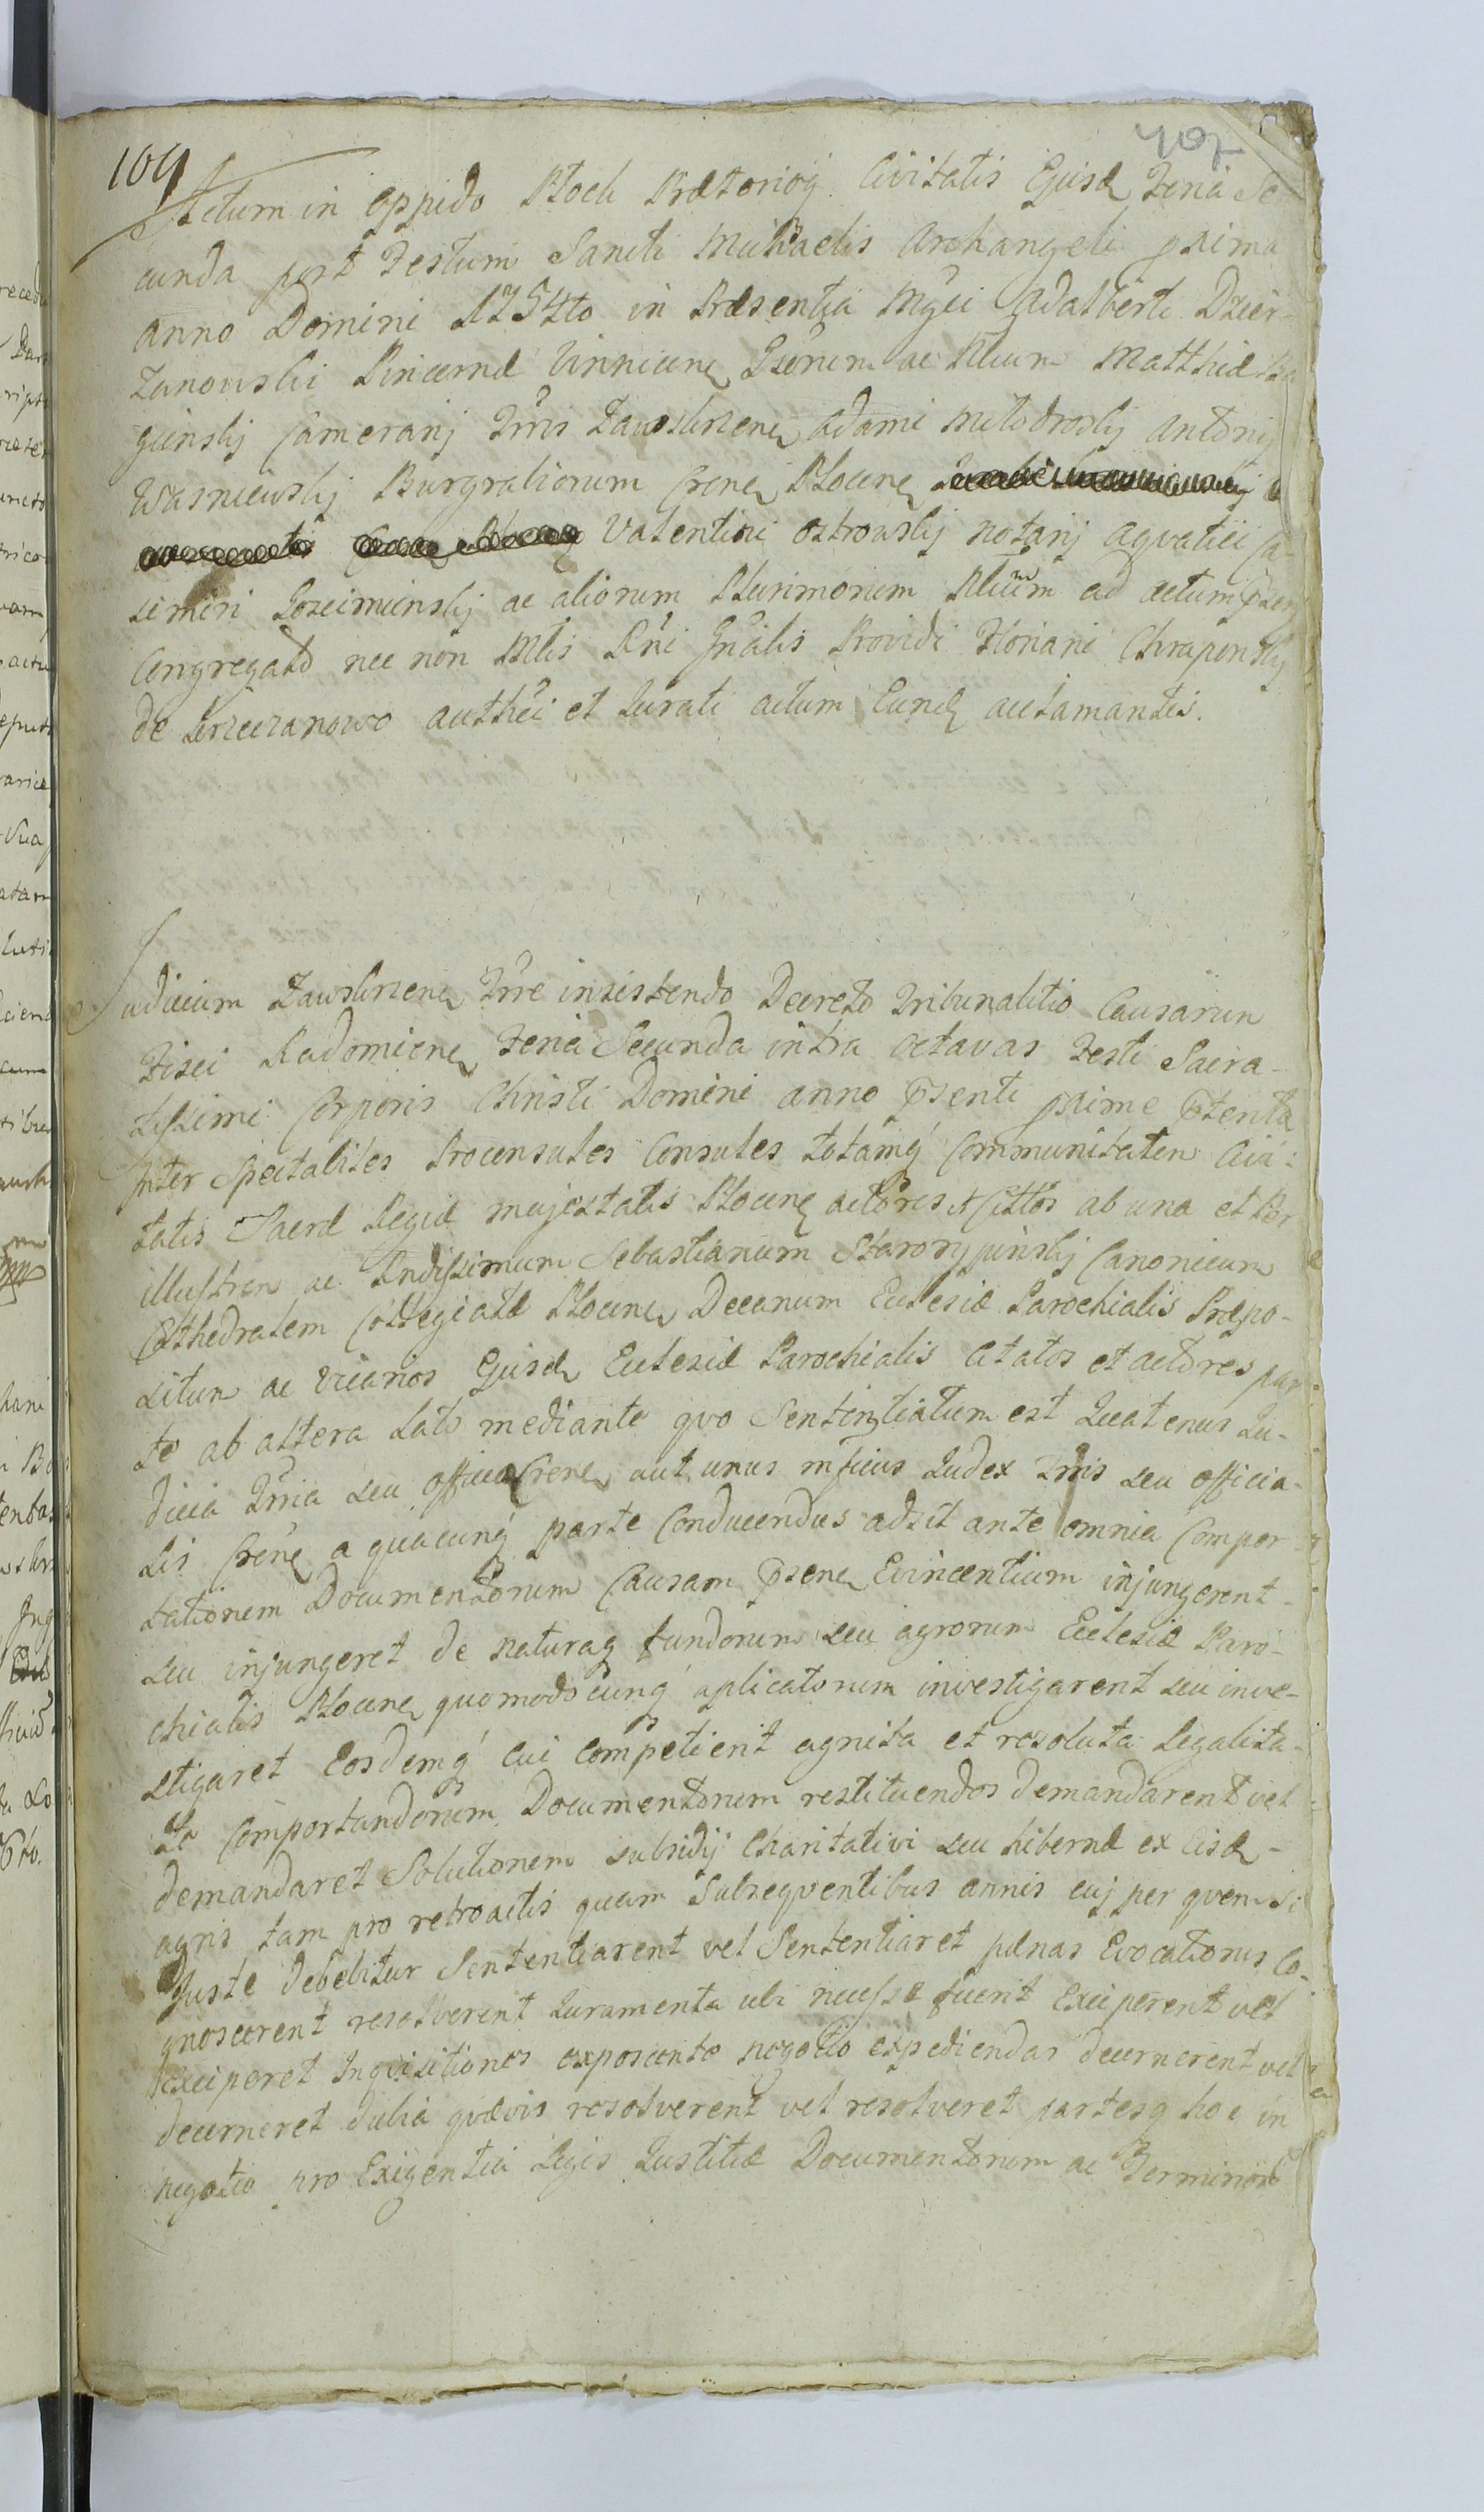 109
407
Actum in oppido Ploch Prætorioq Civitatis Ejusd Feria Se-
cunda post Festum Sancti Michaelis Archangeli pxima
anno Domini 1754to in Præsentia Mgci Adalberti Dzier-
zanowski Pincernæ Vinnicen Gsorum ac Nlium Matthiæ
ginskj Camerarij Trris Zawskrzenen Adami Milodroskj Antonij
Wasniewskj Burgrabiorum Cren Plocen
Valentini Ostrowskj notarij aqvatici Ca-
simiri Goscimunskj ac aliorum Plurimorum Nlium ad actum psen
Congregato nec non Mtis Rni Gnalis Providi Floriani Chraponskj
de Krzeczanowo authci et Jurati actum Eund acclamantis.
Judicium Zawskrzenen Trre insistendo Decreto Tribunalitio Causarum
Fisci Radomien Feria Secunda intra octavas Festi Sacra-
tissimi Corporis Christi Domini anno psenti pxime ptenta
Inter Spectabiles Proconsules Consules totamq Communitatem Civi-
tatis Sacræ Regiæ Majestatis Plocen actores et Cittos ab una et Per
illustrem ac Rndissimum Sebastianum Starorypinskj Canonicum
Cathedralem Collegiatæ Plocen Decanum Eclesiæ Parochialis Præpo-
situm ac Vicarios Ejusd Eclesiæ Parochialis Citatos et actores par-
te ab altera Lato mediante qvo Sententiatum est Quatenus Ju-
dicia Trria seu officia Cren aut unus Judex Trris seu officia-
lis Cren a quacunq parte Conducendus adsit ante omnia Compor-
tationem Documentorum Causam psen Evincentium injungerent
seu injungeret de naturaq fundorum seu agrorum Eclesiæ Paro-
chialis Plocen quomodocunq aplicatorum investigarent seu inve-
stigaret Eosdemq cui Competierit agnita et resoluta Legalita-
te Comportandorum Documentorum restituendos demandarent vel
demandaret Solutionem subsidij Charitativi seu hibernæ ex Eisd
agris tam pro retroactis quam Subseqventibus annis cuj per qvem si
Juste debebitur Sententiarent vel Sententiaret pænas Evocationis Co-
gnoscerent resolverent Juramenta ubi necesse fuerit Exciperent vel
Exciperet Inqvisitiones exposcente negotio expediendas decernerent vel
decerneret dubia qvævis resolverent vel resolveret partesq hoc in
negotio pro Exigentia Legis Justitiæ Documentorum ac Terminor